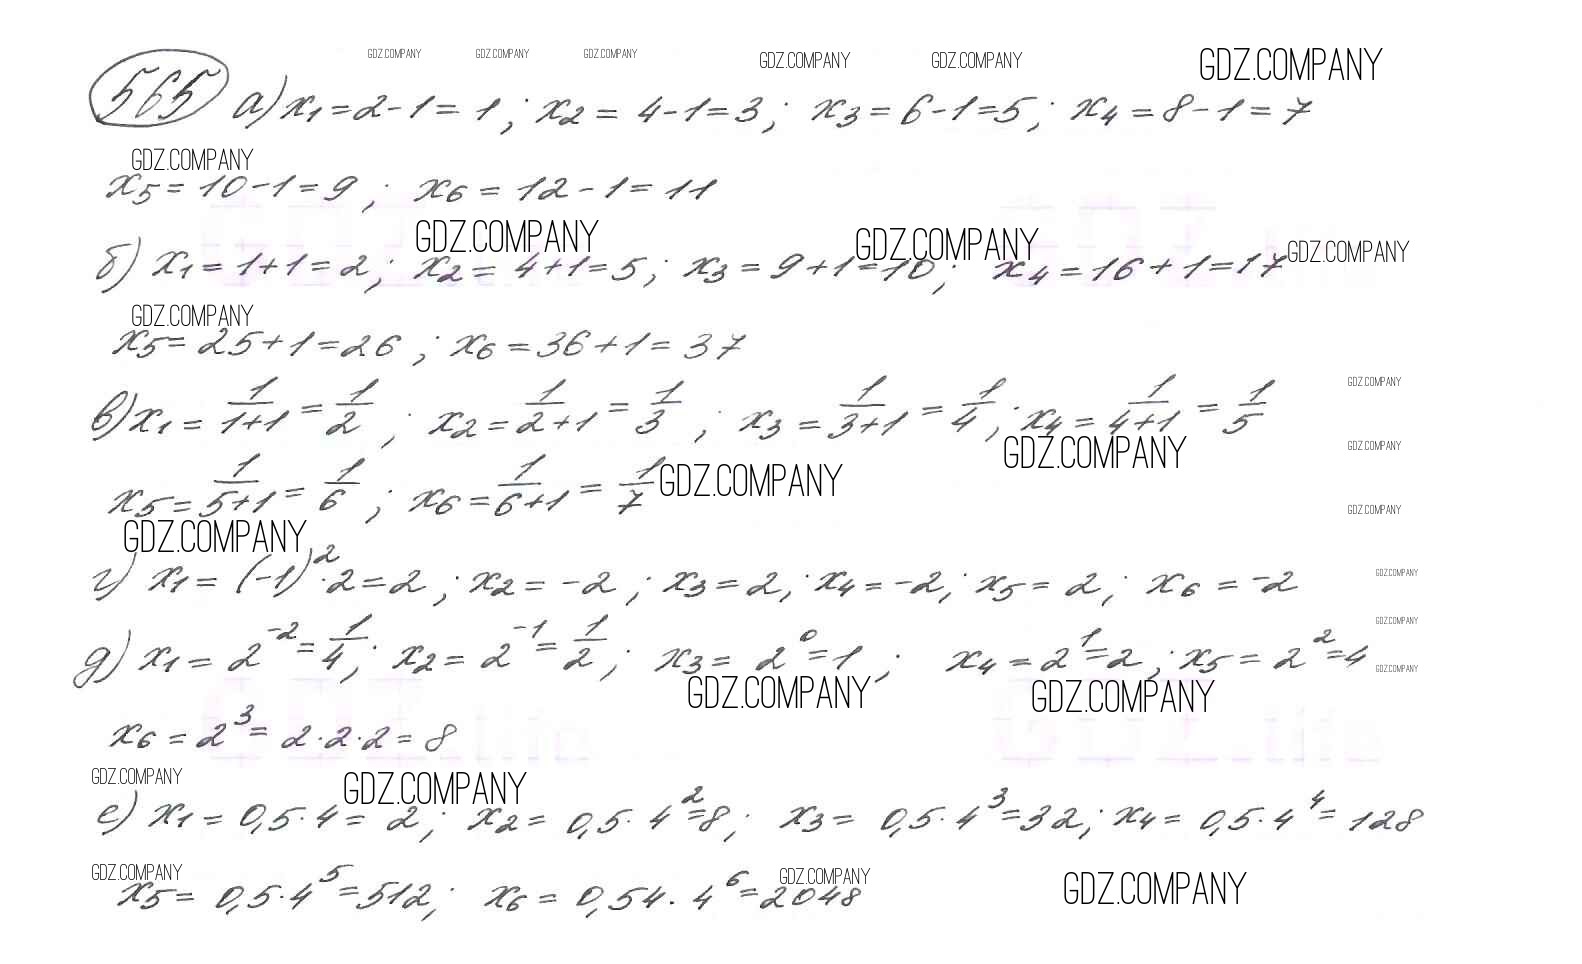 GDZ.COMPANY GDZ.COMPANY GDZ.COMPANY GDZ.COMPANY GDZ.COMPANY GDZ.COMPANY
565 а) x₁ = 2 - 1 = 1 ; x₂ = 4 - 1 = 3 ; x₃ = 6 - 1 = 5 ; x₄ = 8 - 1 = 7
GDZ.COMPANY
x₅ = 10 - 1 = 9 ; x₆ = 12 - 1 = 11
GDZ.COMPANY GDZ.COMPANY GDZ.COMPANY
б) x₁ = 1 + 1 = 2 ; x₂ = 4 + 1 = 5 ; x₃ = 9 + 1 = 10 ; x₄ = 16 + 1 = 17
GDZ.COMPANY
x₅ = 25 + 1 = 26 ; x₆ = 36 + 1 = 37
GDZ.COMPANY
в) x₁ = 1/(1+1) = 1/2 ; x₂ = 1/(2+1) = 1/3 ; x₃ = 1/(3+1) = 1/4 ; x₄ = 1/(4+1) = 1/5
GDZ.COMPANY GDZ.COMPANY
x₅ = 1/(5+1) = 1/6 ; x₆ = 1/(6+1) = 1/7 GDZ.COMPANY
GDZ.COMPANY
GDZ.COMPANY
г) x₁ = (-1)² · 2 = 2 ; x₂ = -2 ; x₃ = 2 ; x₄ = -2 ; x₅ = 2 ; x₆ = -2
GDZ.COMPANY
GDZ.COMPANY
д) x₁ = 2⁻² = 1/4 ; x₂ = 2⁻¹ = 1/2 ; x₃ = 2⁰ = 1 ; x₄ = 2¹ = 2 ; x₅ = 2² = 4
GDZ.COMPANY
GDZ.COMPANY GDZ.COMPANY
x₆ = 2³ = 2 · 2 · 2 = 8
GDZ.COMPANY GDZ.COMPANY
е) x₁ = 0,5 · 4 = 2 ; x₂ = 0,5 · 4² = 8 ; x₃ = 0,5 · 4³ = 32 ; x₄ = 0,5 · 4⁴ = 128
GDZ.COMPANY GDZ.COMPANY GDZ.COMPANY
x₅ = 0,5 · 4⁵ = 512 ; x₆ = 0,54 · 4⁶ = 2048